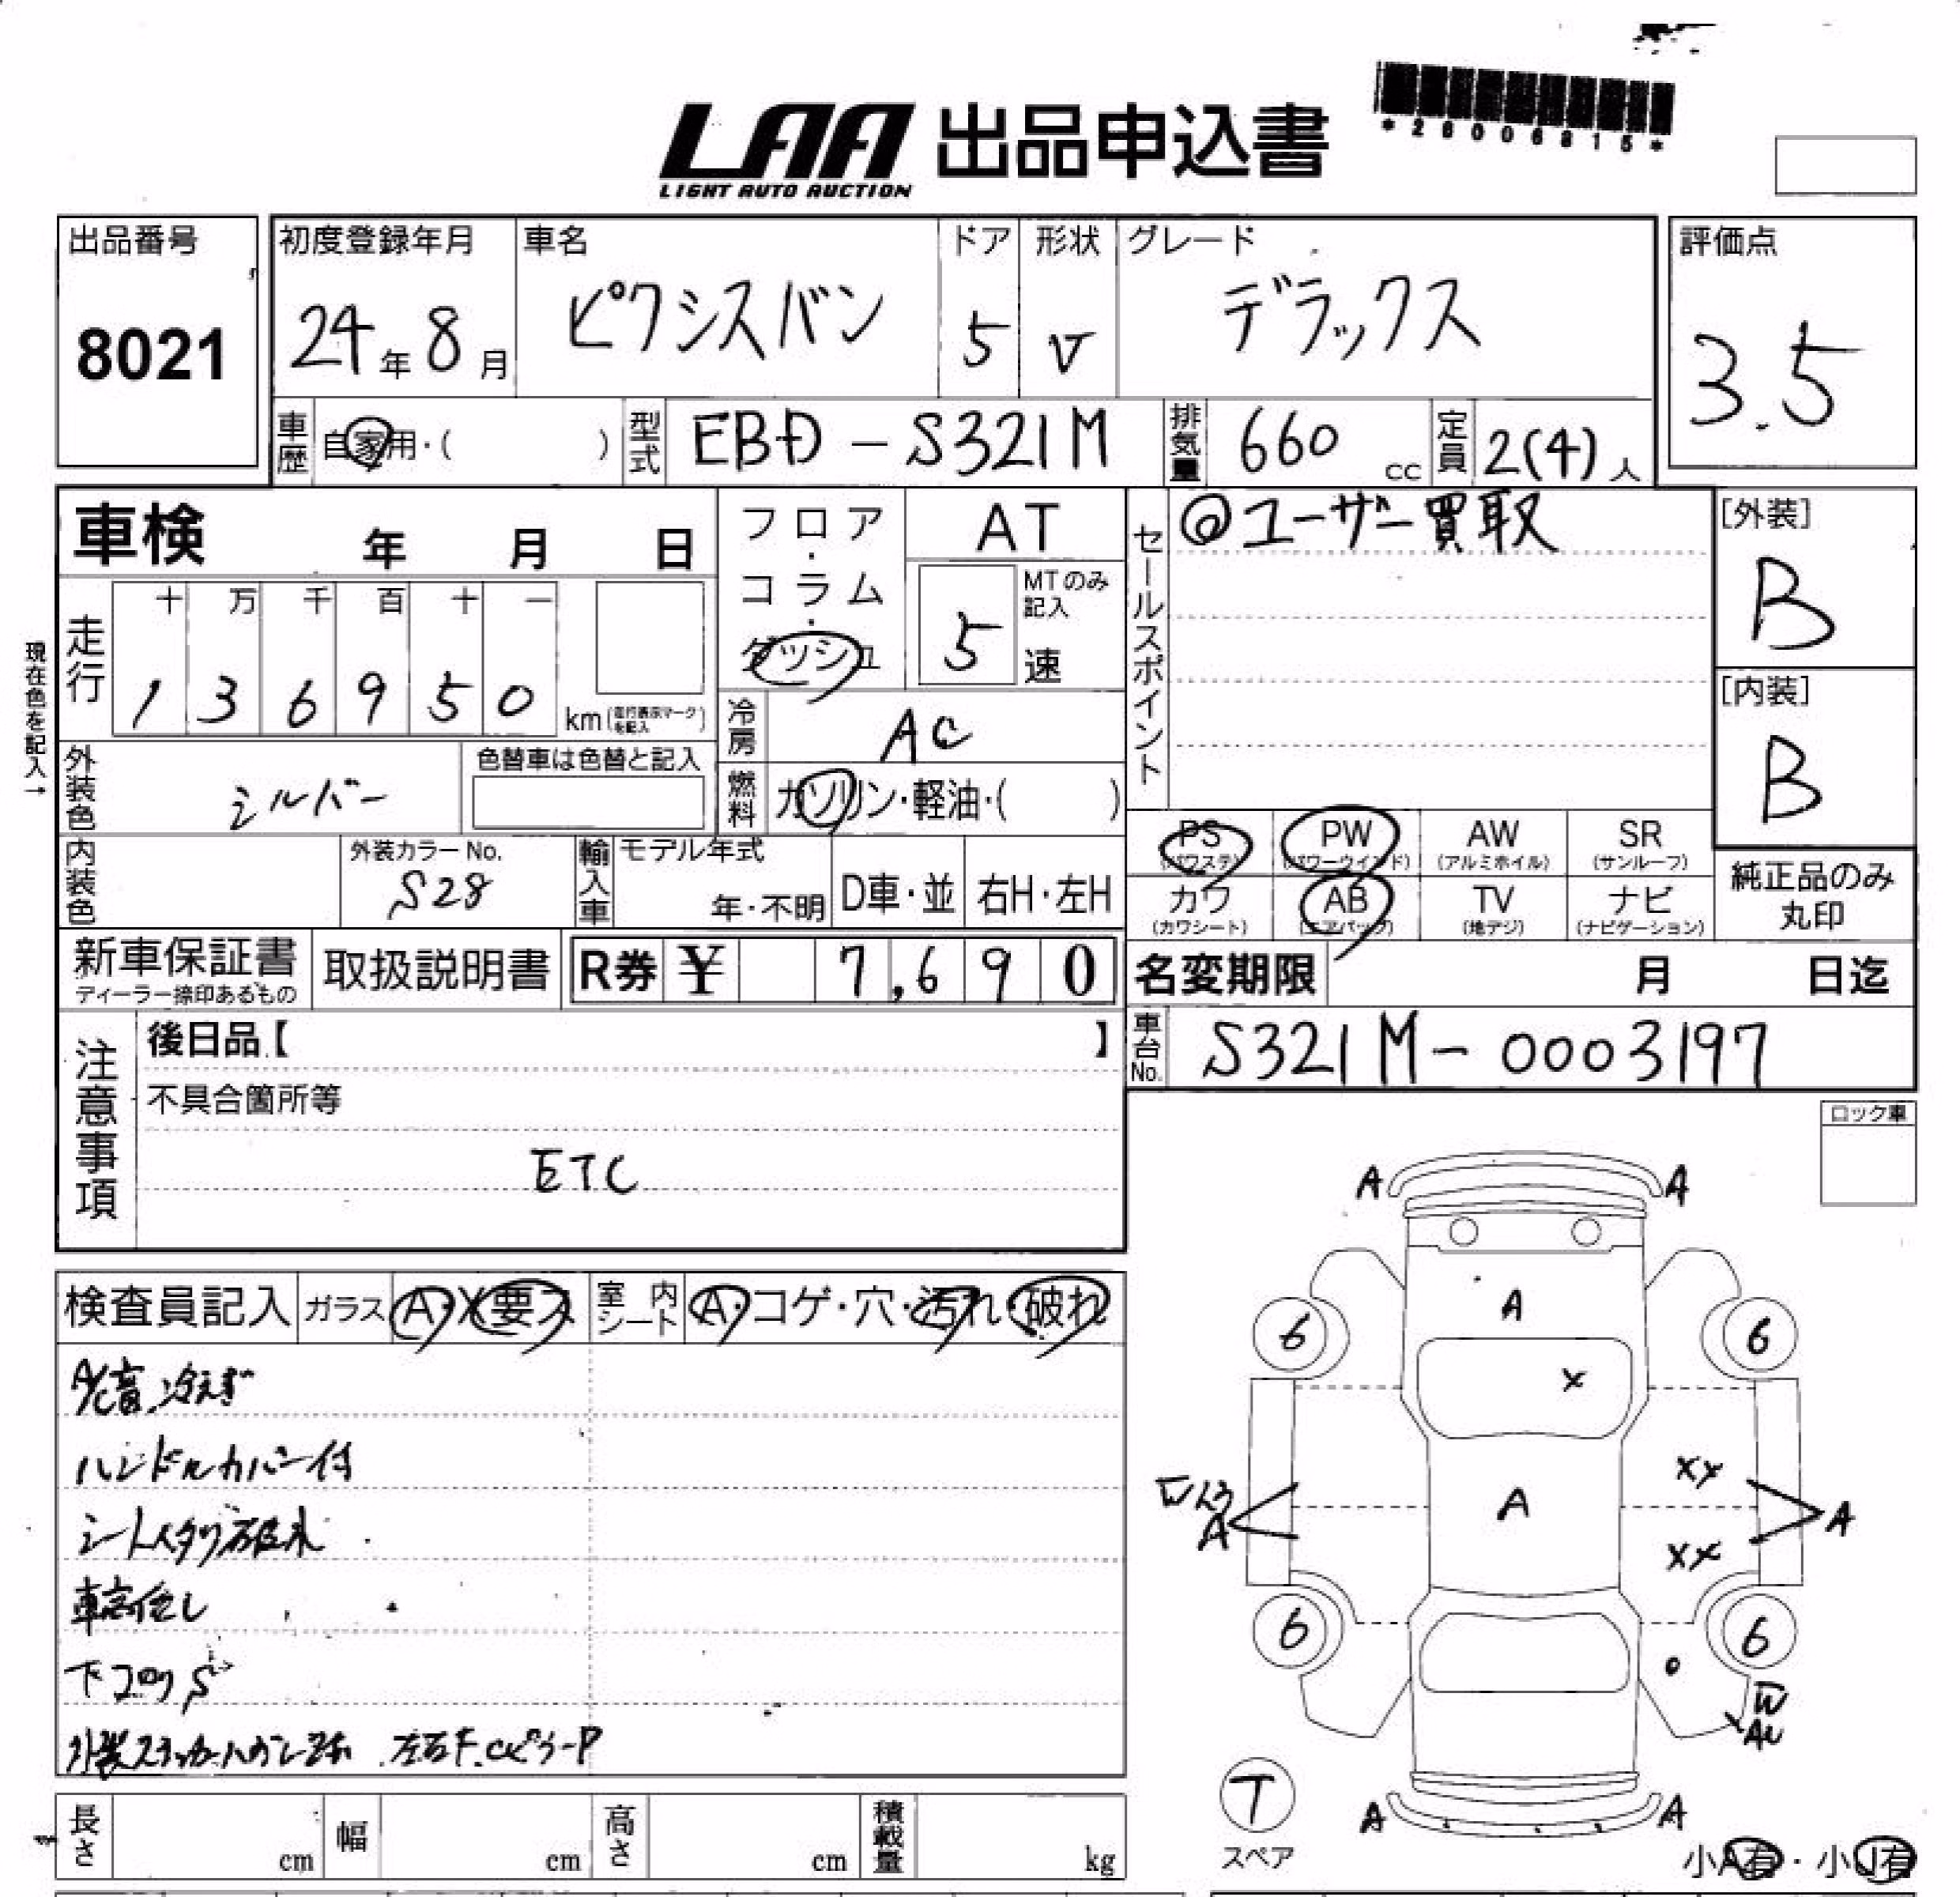 *26006815*
LAA 出品申込書
LIGHT AUTO AUCTION
出品番号
8021
初度登録年月
24年8月
車名
ピクシスバン
ドア
5
形状
V
グレード
デラックス
評価点
3.5
車歴 自家用・( )
型式 EBD-S321M
排気量 660 cc
定員 2(4)人
車検 年 月 日
フロア・コラム・ダッシュ
AT
5 MTのみ記入 速
セールスポイント
◎ユーザー買取
[外装]
B
[内装]
B
現在色を記入→
走行
十 万 千 百 十 一
1 3 6 9 5 0 km(走行表示マークを記入)
冷房 AC
外装色 シルバー
色替車は色替と記入
燃料 ガソリン・軽油・( )
PS (パワステ)
PW (パワーウインド)
AW (アルミホイル)
SR (サンルーフ)
カワ (カワシート)
AB (エアバッグ)
TV (地デジ)
ナビ (ナビゲーション)
純正品のみ丸印
内装色
外装カラーNo.
S28
輸入車
モデル年式
年・不明
D車・並
右H・左H
新車保証書
ディーラー捺印あるもの
取扱説明書
R券 ¥ 7,690
名変期限 月 日迄
車台No. S321M-0003197
注意事項
後日品【 】
不具合箇所等
ETC
ロック車
検査員記入 ガラス A・X要ス
室内シート A・コゲ・穴・汚れ・破れ
A/C音、冷えず
ハンドルカバー付
シートヘタリ破れ
車高低し
下コロリS
A A
A
6 6
X
XX
A
A A
XX
6 6
W
AU
T
スペア
A A
小A有・小U有
長さ cm
幅 cm
高さ cm
積載量 kg